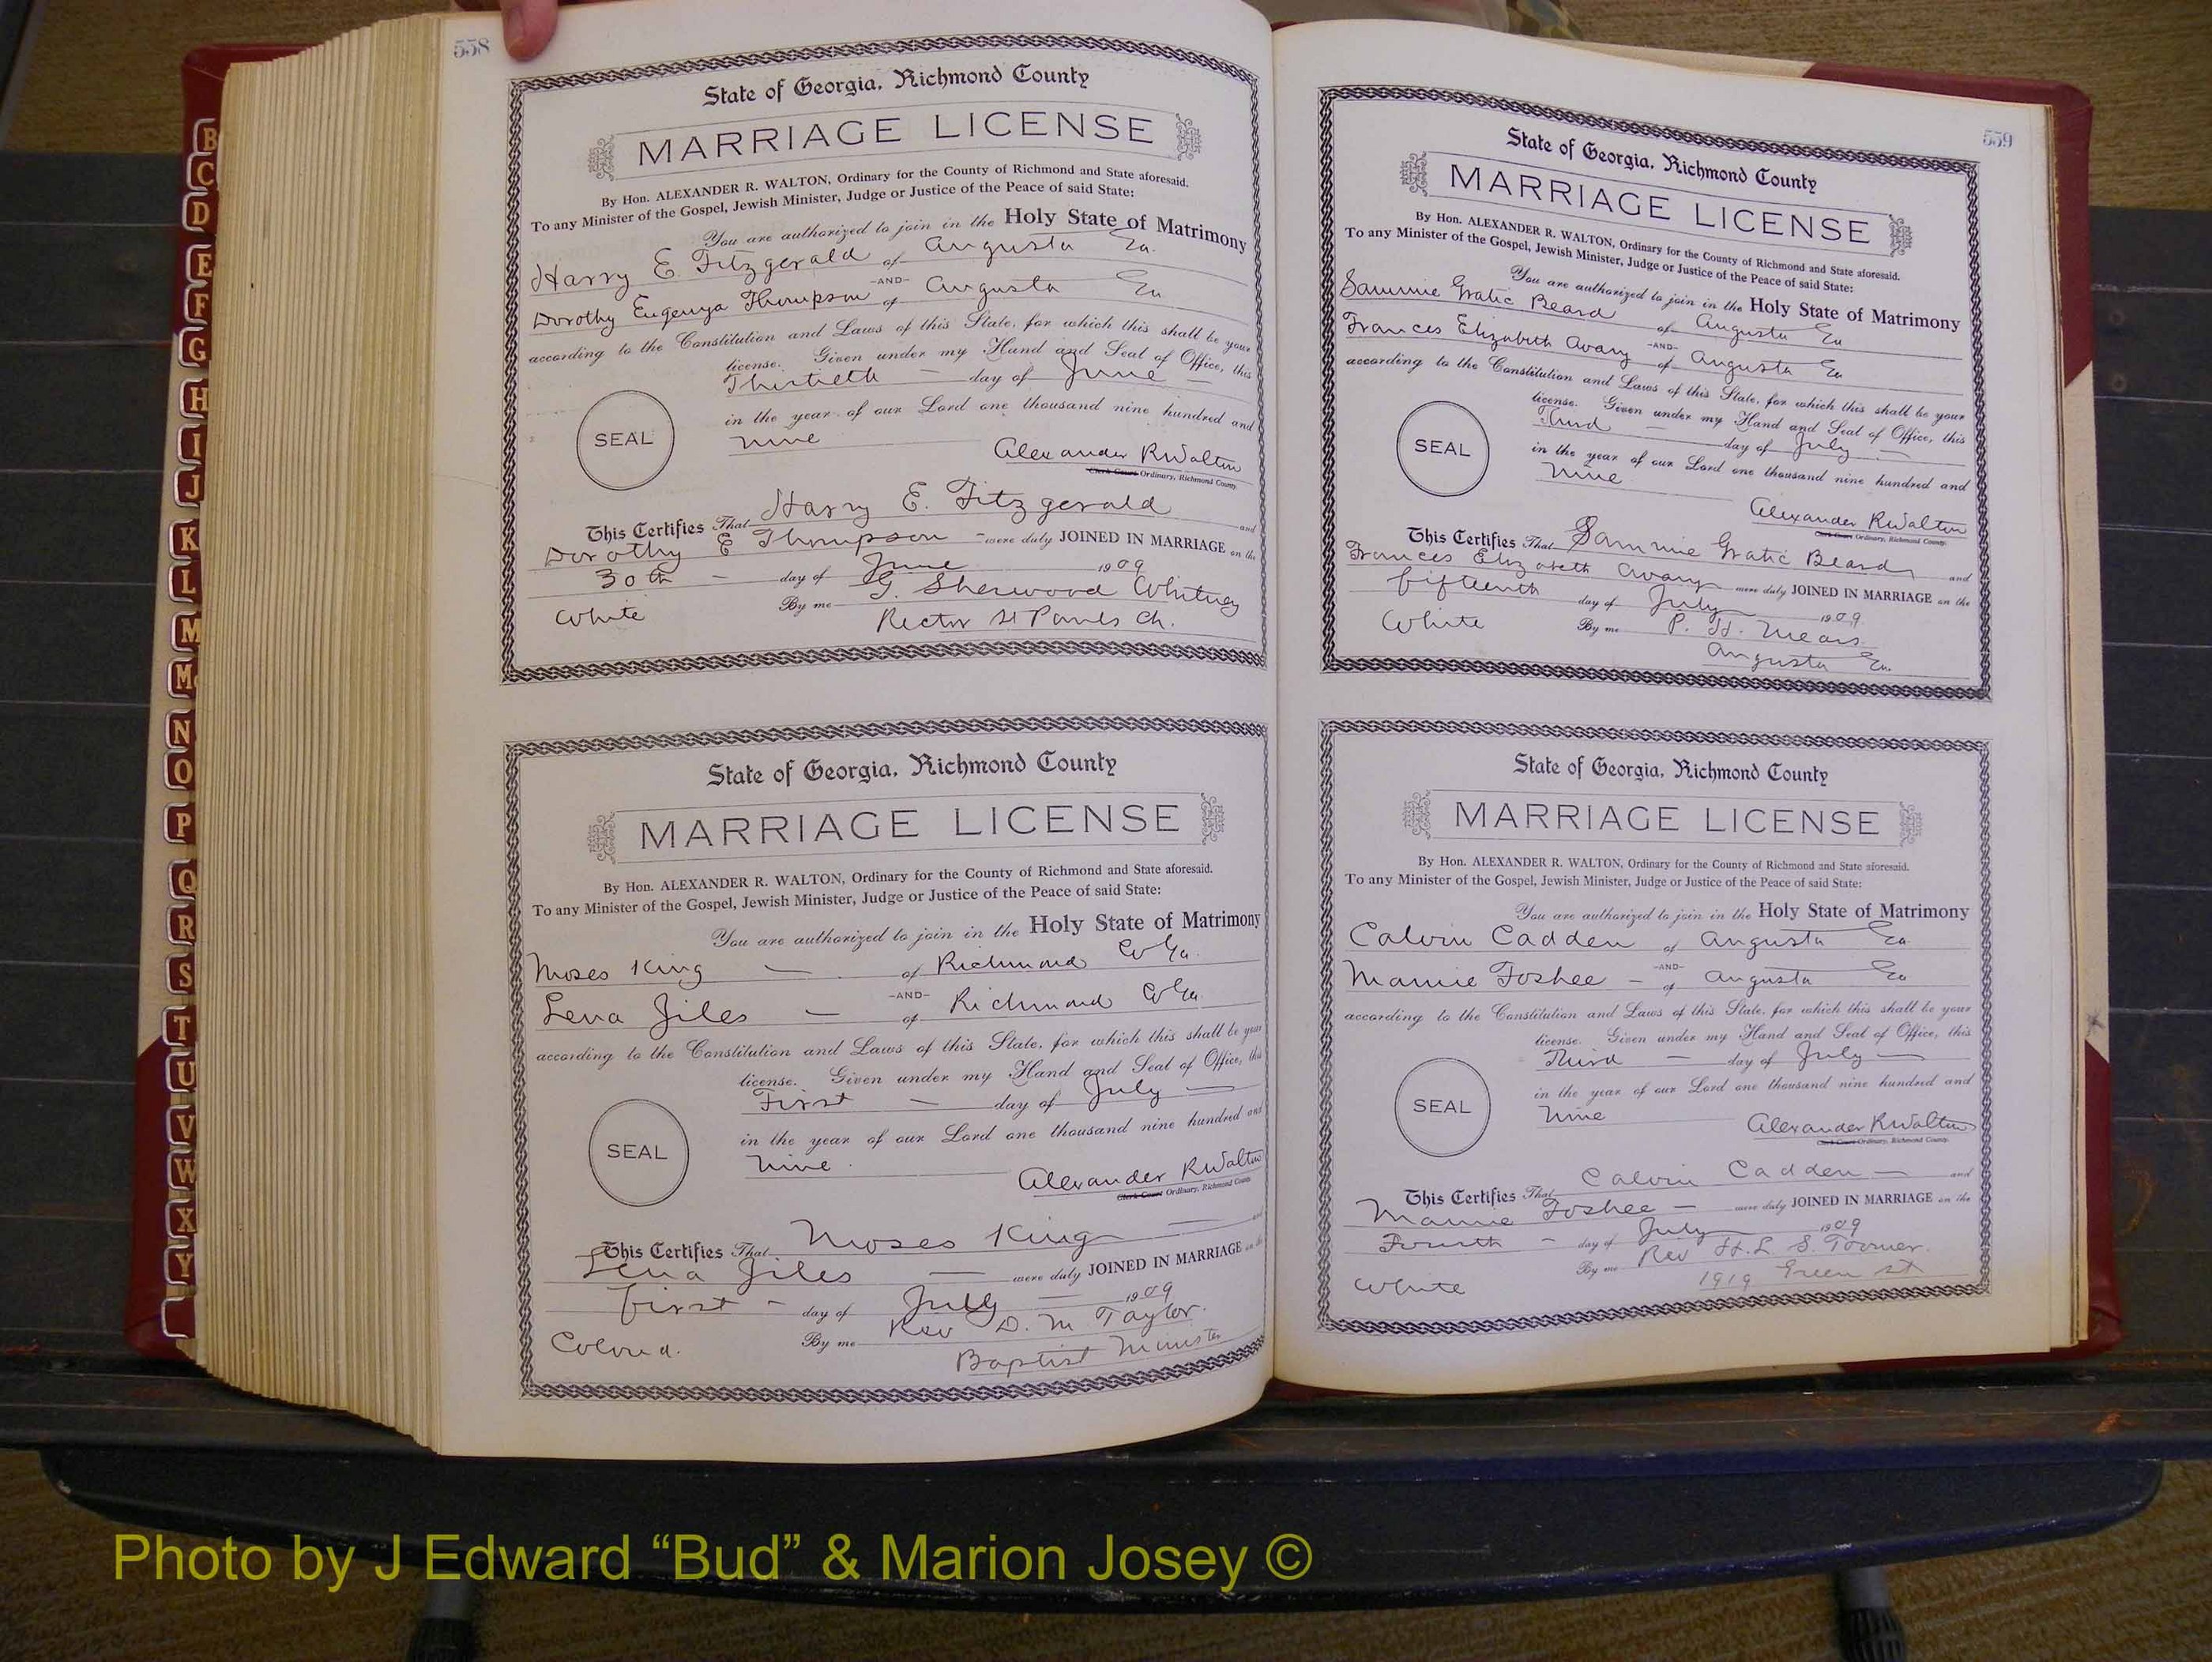 558
State of Georgia, Richmond County
MARRIAGE LICENSE
By Hon. ALEXANDER R. WALTON, Ordinary for the County of Richmond and State aforesaid.
To any Minister of the Gospel, Jewish Minister, Judge or Justice of the Peace of said State:
You are authorized to join in the Holy State of Matrimony
Harry E. Fitzgerald of Augusta Ga.
-AND-
Dorothy Eugenya Thompson of Augusta Ga
according to the Constitution and Laws of this State, for which this shall be your
license. Given under my Hand and Seal of Office, this
Thirtieth - day of June -
in the year of our Lord one thousand nine hundred and
nine
SEAL
Alexander R Walton
Clerk Court Ordinary, Richmond County
This Certifies That Harry E. Fitzgerald and
Dorothy E Thompson - were duly JOINED IN MARRIAGE on the
30th - day of June 1909
White By me G. Sherwood Whitney
Rector St Pauls Ch.
State of Georgia, Richmond County
MARRIAGE LICENSE
By Hon. ALEXANDER R. WALTON, Ordinary for the County of Richmond and State aforesaid.
To any Minister of the Gospel, Jewish Minister, Judge or Justice of the Peace of said State:
You are authorized to join in the Holy State of Matrimony
Moses King - of Richmond Co Ga.
-AND-
Lena Jiles - of Richmond Co Ga.
according to the Constitution and Laws of this State, for which this shall be your
license. Given under my Hand and Seal of Office, this
First - day of July -
in the year of our Lord one thousand nine hundred and
nine.
SEAL
Alexander R Walton
Clerk Court Ordinary, Richmond County
This Certifies That Moses King - and
Lena Jiles - were duly JOINED IN MARRIAGE on the
first - day of July - 1909
Colored. By me Rev D. M Taylor.
Baptist Minister
559
State of Georgia, Richmond County
MARRIAGE LICENSE
By Hon. ALEXANDER R. WALTON, Ordinary for the County of Richmond and State aforesaid.
To any Minister of the Gospel, Jewish Minister, Judge or Justice of the Peace of said State:
You are authorized to join in the Holy State of Matrimony
Sammie Gratic Beard of Augusta Ga
-AND-
Frances Elizabeth Avary of Augusta Ga
according to the Constitution and Laws of this State, for which this shall be your
license. Given under my Hand and Seal of Office, this
Third - day of July -
in the year of our Lord one thousand nine hundred and
nine
SEAL
Alexander R Walton
Clerk Court Ordinary, Richmond County
This Certifies That Sammie Gratic Beard and
Frances Elizabeth Avary were duly JOINED IN MARRIAGE on the
fifteenth day of July 1909
White By me P. H. Mears
Augusta Ga.
State of Georgia, Richmond County
MARRIAGE LICENSE
By Hon. ALEXANDER R. WALTON, Ordinary for the County of Richmond and State aforesaid.
To any Minister of the Gospel, Jewish Minister, Judge or Justice of the Peace of said State:
You are authorized to join in the Holy State of Matrimony
Calvin Cadden of Augusta Ga
-AND-
Mamie Foshee - of Augusta Ga
according to the Constitution and Laws of this State, for which this shall be your
license. Given under my Hand and Seal of Office, this
Third - day of July -
in the year of our Lord one thousand nine hundred and
nine
SEAL
Alexander R Walton
Clerk Court Ordinary, Richmond County
This Certifies That Calvin Cadden - and
Mamie Foshee - were duly JOINED IN MARRIAGE on the
Fourth - day of July 1909
White By me Rev H. L. S. Toomer.
1919 Green st
B
C
D
E
F
G
H
I
J
K
L
M
Mc
N
O
P
Q
R
S
T
U
V
W
X
Y
Photo by J Edward “Bud” & Marion Josey ©